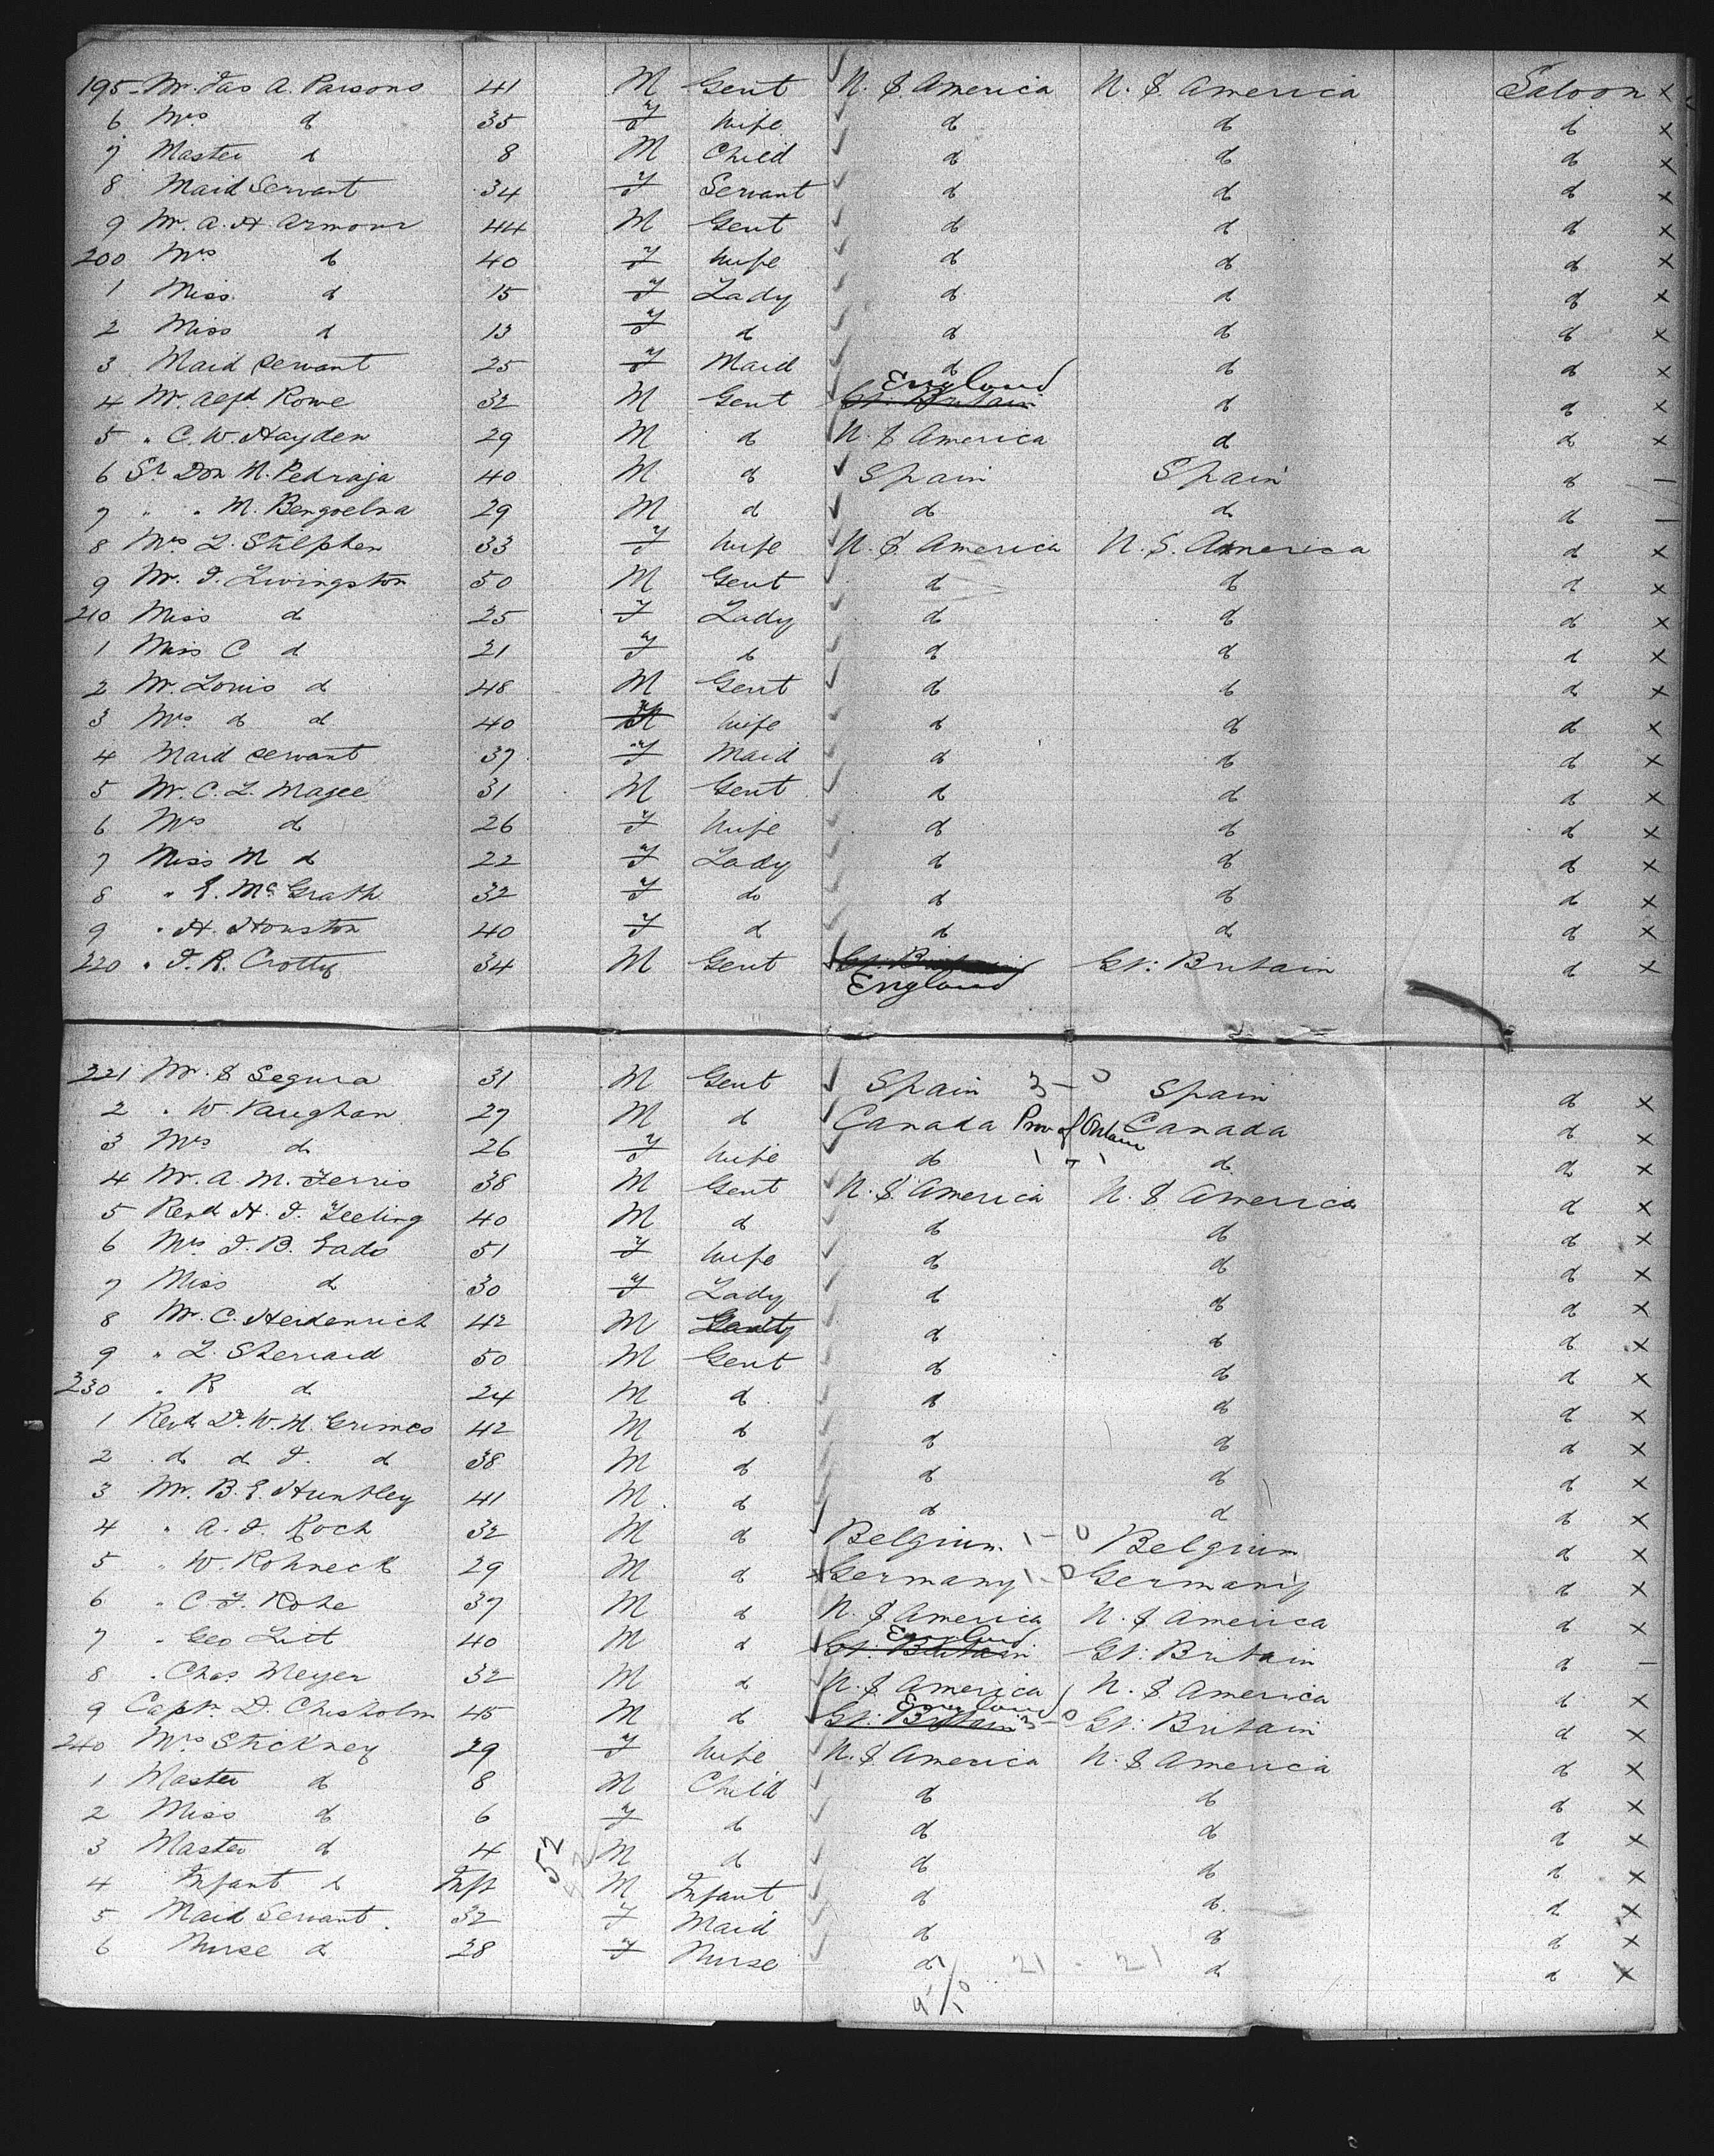 195 Mr. Jas A. Parsons 41 M Gent U. S. America U. S. America Saloon x
6 Mrs d 35 F Wife d d d x
7 Master d 8 M Child d d d x
8 Maid Servant 34 F Servant d d d x
9 Mr. A. H. Armour 44 M Gent d d d x
200 Mrs d 40 F Wife d d d x
1 Miss d 15 F Lady d d d x
2 Miss d 13 F d d d d x
3 Maid servant 25 F Maid d d d x
England
4 Mr. Alfd. Rowe 32 M Gent Gt. Britain d d x
5 " C. W. Hayden 29 M d U. S. America d d x
6 Sr Don M. Pedraja 40 M d Spain Spain d -
7 " " M. 29 M d d d d -
8 Mrs L. Stilphen 33 F Wife U. S. America U. S. America d x
9 Mr. J. Livingston 50 M Gent d d d x
210 Miss d 25 F Lady d d d x
1 Miss C d 21 F d d d d x
2 Mr. Louis d 48 M Gent d d d x
3 Mrs d d 40 F Wife d d d x
4 Maid servant 37 F Maid d d d x
5 Mr. C. L. Magee 31 M Gent d d d x
6 Mrs d 26 F Wife d d d x
7 Miss M d 22 F Lady d d d x
8 " E. McGrath 32 F do d d d x
9 " H. Houston 40 F d d d d x
220 " J. R. Crotty 34 M Gent Gt. Britain Gt: Britain d x
England
221 Mr. S Segura 31 M Gent Spain 3-0 Spain d x
2 " W. Vaughan 27 M d Canada Prov of Ontario Canada d x
3 Mrs d 26 F Wife d 1-1 d d x
4 Mr. A. M. Ferris 38 M Gent U. S. America U. S. America d x
5 Revd. H. J. Zeeling 40 M d d d d x
6 Mrs J. B. Eads 51 F Wife d d d x
7 Miss d 30 F Lady d d d x
8 Mr. C. Heidenrich 42 M d d d x
9 " L. Sherrard 50 M Gent d d d x
230 " R d 24 M d d d d x
1 Revd. Dr. W. M. Grimes 42 M d d d d x
2 d d J. d 38 M d d d d x
3 Mr. B. E. Huntley 41 M d d d d x
4 " A. J. Koch 32 M d Belgium 1-0 Belgium d x
5 " W. Rohneck 29 M d Germany 1-0 Germany d x
6 " C. F. Rohe 37 M d U. S. America U. S. America d x
England
7 " Geo Litt 40 M d Gt: Britain Gt: Britain d -
8 " Chas. Meyer 32 M d U. S. America U. S. America d x
England
9 Captn. D. Chisholm 45 M d Gt: Britain 3-0 Gt: Britain d x
240 Mrs Stickney 29 F Wife U. S. America U. S. America d x
1 Master d 8 M Child d d d x
2 Miss d 6 F d d d d x
3 Master d 4 52 M d d d d x
4 Infant d Inft M Infant d d d x
5 Maid Servant 32 F Maid d d d x
6 Nurse d 28 F Nurse d 21 - 21 d d x